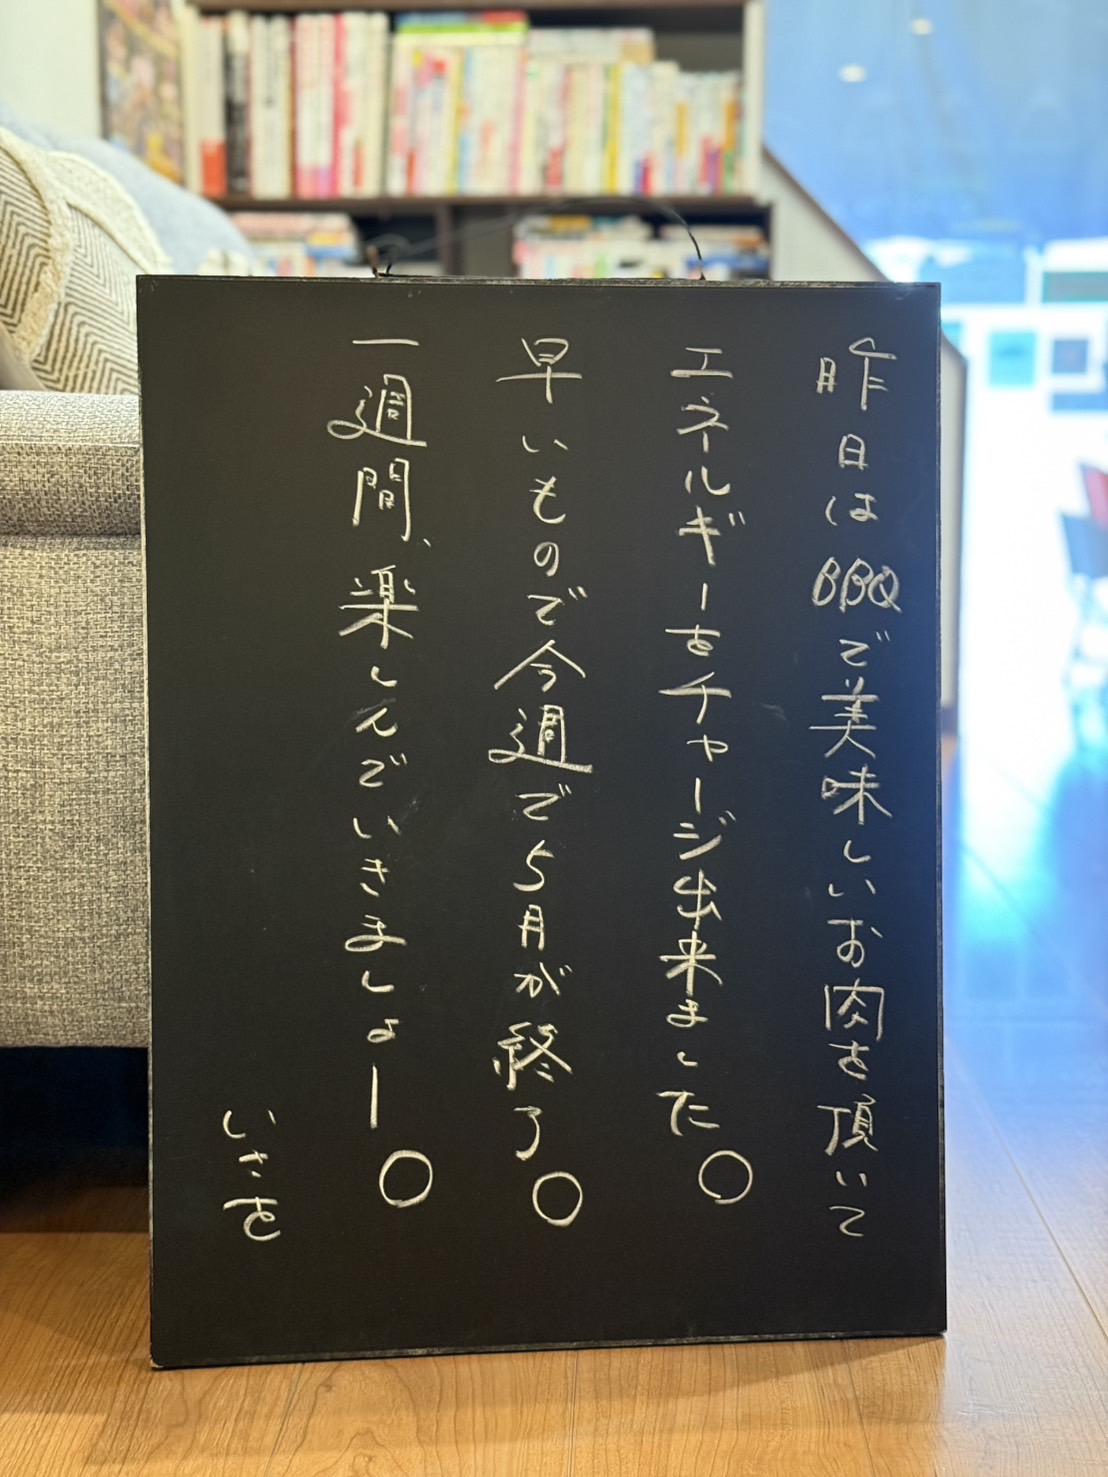 昨日はBBQで美味しいお肉を頂いて
エネルギーをチャージ出来ました。
早いもので今週で5月が終了。
一週間、楽しんでいきましょー。
いさを